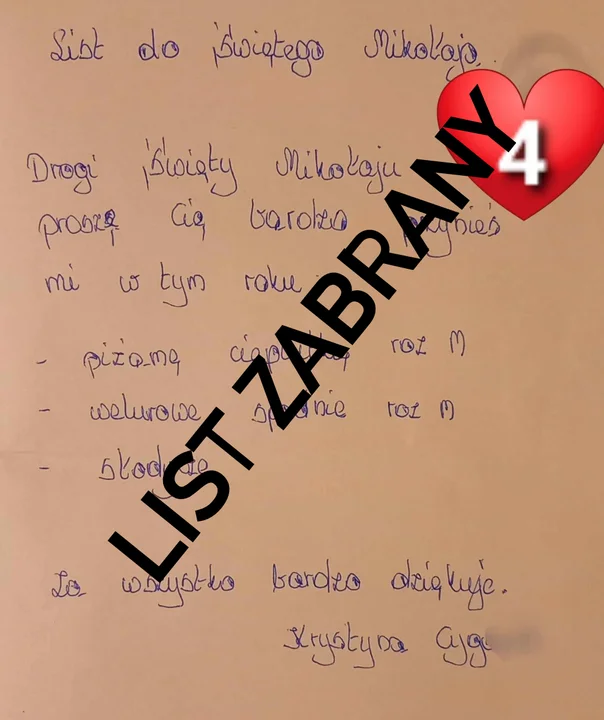 List do Świętego Mikołaja.
4
Drogi Święty Mikołaju
proszę Cię bardzo przynieś
mi w tym roku:
- piżamę cieplutką roz M
- welurowe spodnie roz M
- słodycze
Za wszystko bardzo dziękuję.
Krystyna
LIST ZABRANY